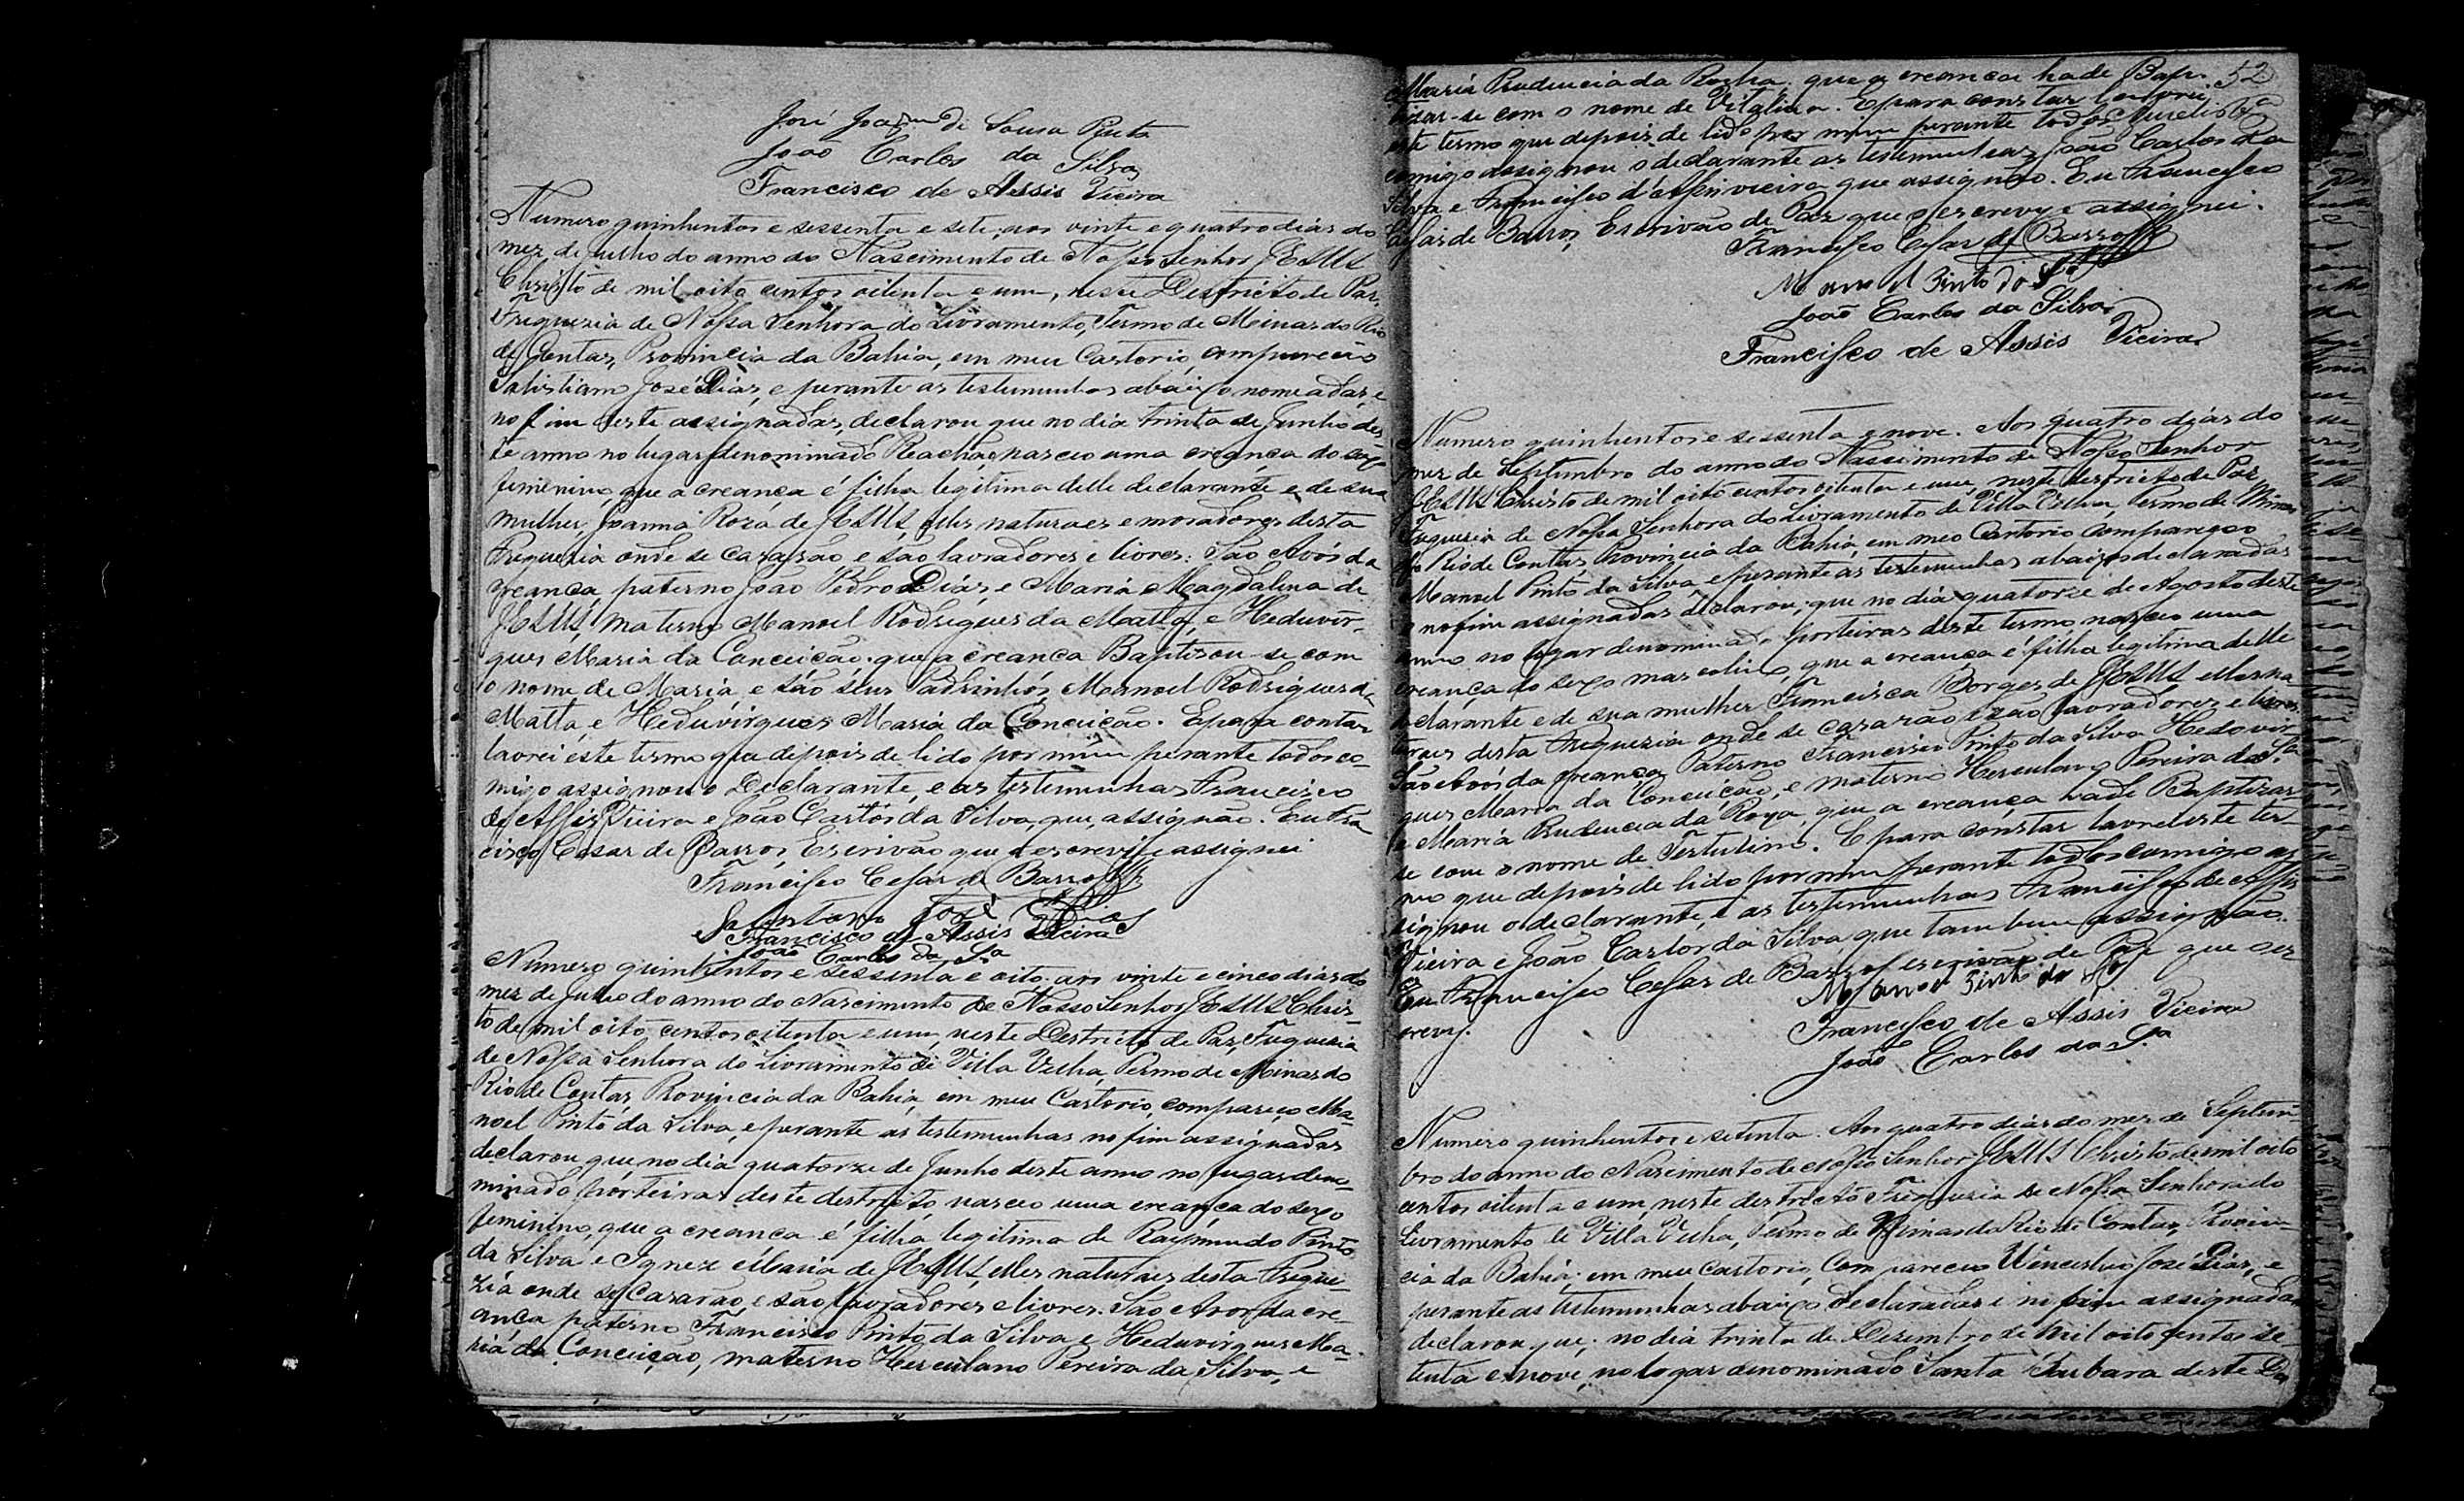 José Joaqm de Sousa Pinto
João Carlos da Silva
Francisco de Assis Vieira
Numero quinhentos e sessenta e sete, aos vinte e quatro dias do
mez de Julho do anno do Nascimento de Nosso Senhor JESUS
Christo de mil oito centos oitenta e um, nesse Destricto de Paz,
Freguezia de Nossa Senhora do Livramento, Termo de Minas do Rio
de Contas, Provincia da Bahia, em meu Cartorio, compareceo
José Dias, e perante as testemunhas abaixo nomeadas, e
no fim deste assignadas, declarou que no dia trinta de Junho des
te anno no lugar denominado Riacho, nasceu uma creança do sexo
feminino, que a creança é filha legitima delle declarante e de sua
mulher, Joanna Roza de JESUS, elles naturaes e moradores desta
Freguezia onde se casarão e são lavradores e livres. São Avós da
creança, paterno João Pedro Dias, e Maria Magdalena de
JESUS, materno Manoel Rodrigues da Matta, e Heduvir-
ques Maria da Conceição. que a creança Baptisou-se com
o nome de Maria, e são seus Padrinhos, Manoel Rodrigues da
Matta, e Heduvirques Maria da Conceição. E para contar
lavrei este termo que depois de lido por mim perante todos co-
migo assignou o Declarante, e as testemunhas Francisco
de Assis Vieira e João Carlos da Silva, que, assignão. Eu Fran
cisco Cesar de Barros, Escrivão que o escrevi e assignei
Francisco Cesar de Barros
José Dias
Francisco de Assis Vieira
João Carlos da Sa
Numero quinhentos e sessenta e oito. aos vinte e cinco dias do
mez de Julho do anno do Nascimento de Nosso Senhor JESUS Chris-
to de mil oito centos oitenta e um, neste Destricto de Paz, Freguezia
de Nossa Senhora do Livramento de Villa Velha, Termo de Minas do
Rio de Contas, Provincia da Bahia, em meu Cartorio, compareceo Ma-
noel Pinto da Silva, e perante as testemunhas no fim assignadas
declarou que no dia quatorze de Junho deste anno no lugar deno-
minado porteiras deste destricto, nasceu uma creança do sexo
feminino, que a creança é filha legitima de Raymundo Pinto
da Silva e Ignez Maria de JESUS, elles naturaes desta Fregue-
zia onde se casarão, e são lavradores e livres. São Avos da cre-
ança paterno Francisco Pinto da Silva e Heduvirques Ma-
ria da Conceição, materno Herculano Pereira da Silva, e
52
Maria Prudencia da Rocha, que a creança hade Bap-
tizar-se com o nome de Vitalina. E para constar lavrei
este termo que depois de lido por mim perante todos
comigo assignou o declarante as testemunhas João Carlos da
Silva e Francisco d'Assis vieira que assignão. Eu Francisco
Cesar de Barros, Escrivão de Paz que o escrevy e assignei.
Francisco Cesar de Barros
Manoel Pinto da Sa
João Carlos da Silva
Francisco de Assis Vieira
Numero quinhentos e sessenta e nove. Aos quatro dias do
mez de Septembro do anno do Nascimento de Nosso Senhor
JESUS Christo de mil oito centos oitenta e um, neste destricto de Paz
Freguezia de Nossa Senhora do Livramento de Villa Velha, Termo de Minas
do Rio de Contas Provincia da Bahia, em meo Cartorio compareceo
Manoel Pinto da Silva e perante as testemunhas abaixo declaradas
e no fim assignadas declarou, que no dia quatorze de Agosto deste
anno no lugar denominado porteiras deste termo nasceu uma
creança do sexo masculino, que a creança é filha legitima delle
declarante e de sua mulher Francisca Borges de JESUS elles na-
turaes desta freguezia onde se casarão e são lavradores e livres.
São Avós da creança, Paterno Francisco Pinto da Silva Heduvir-
ques Maria da Conceição, e materno Herculano Pereira da Sa
e Maria Prudencia da Roxa, que a creança hade Baptizar-
se com o nome de Tertulino. E para constar lavrei este ter-
mo que depois de lido por mim perante todos comigo as
signou o declarante, e as testemunhas Francisco de Assis
Vieira e João Carlos da Silva que tambem assignão.
Eu Francisco Cesar de Barros escrivão de Paz que o es
crevy.
Manoel Pinto da Sa
Francisco de Assis Vieira
João Carlos da Sa
Numero quinhentos e setenta. Aos quatro dias do mez de Septem-
bro do anno do Nascimento de Nosso Senhor JESUS Christo de mil oito
centos oitenta e um, neste destricto Freguezia de Nossa Senhora do
Livramento de Villa Velha, Termo de Minas do Rio de Contas, Provin-
cia da Bahia; em meu Cartorio, Compareceu José Dias, e
perante as testemunhas abaixo declaradas e no fim assignadas
declarou que, no dia trinta de Dezembro de mil oito centos se-
tenta e nove, no logar denominado Santa Barbara deste D